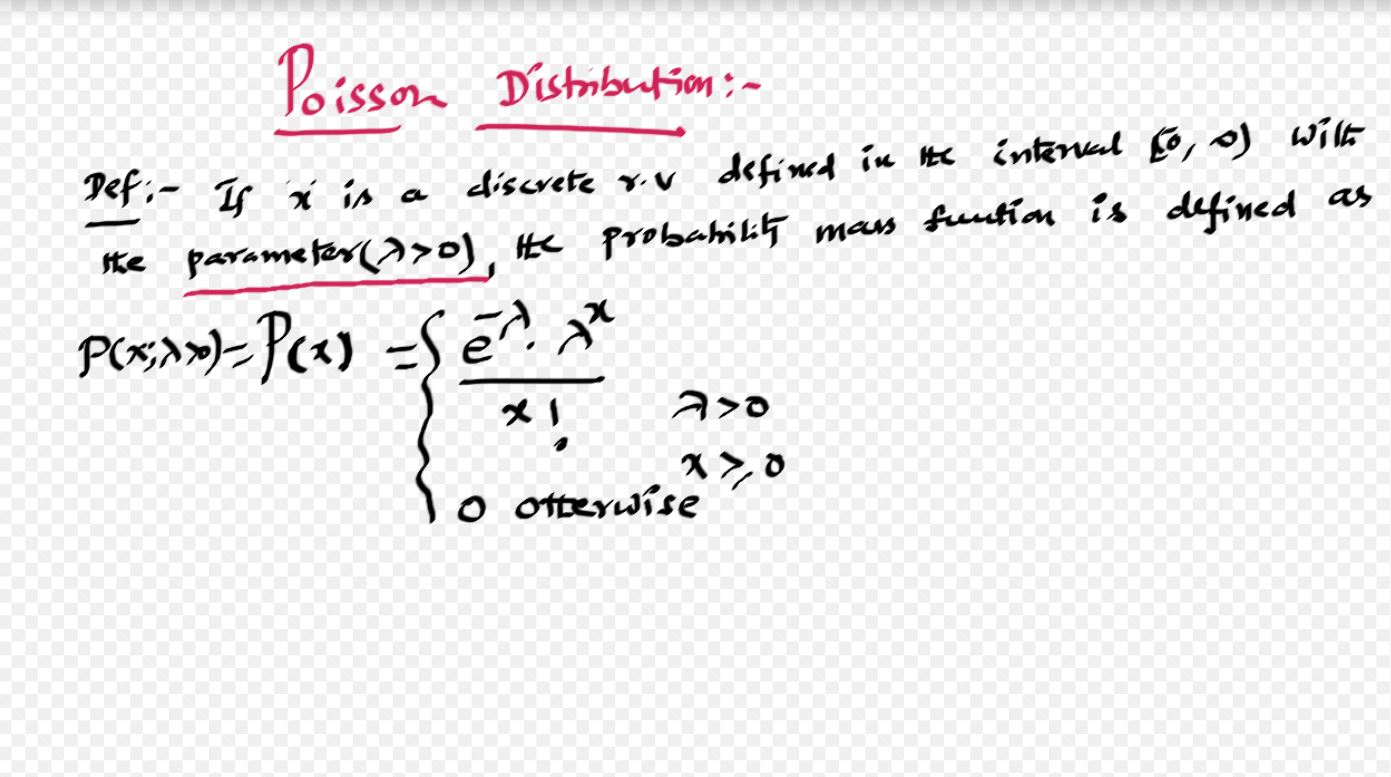 Poisson Distribution:-
Def:- If 'x' is a discrete r.v defined in the interval [0, ∞) with
the parameter(λ>0), the probability mass function is defined as
P(x;λ>0)=P(x) = { e^-λ . λ^x / x!   λ>0
x ≥ 0
0 otherwise